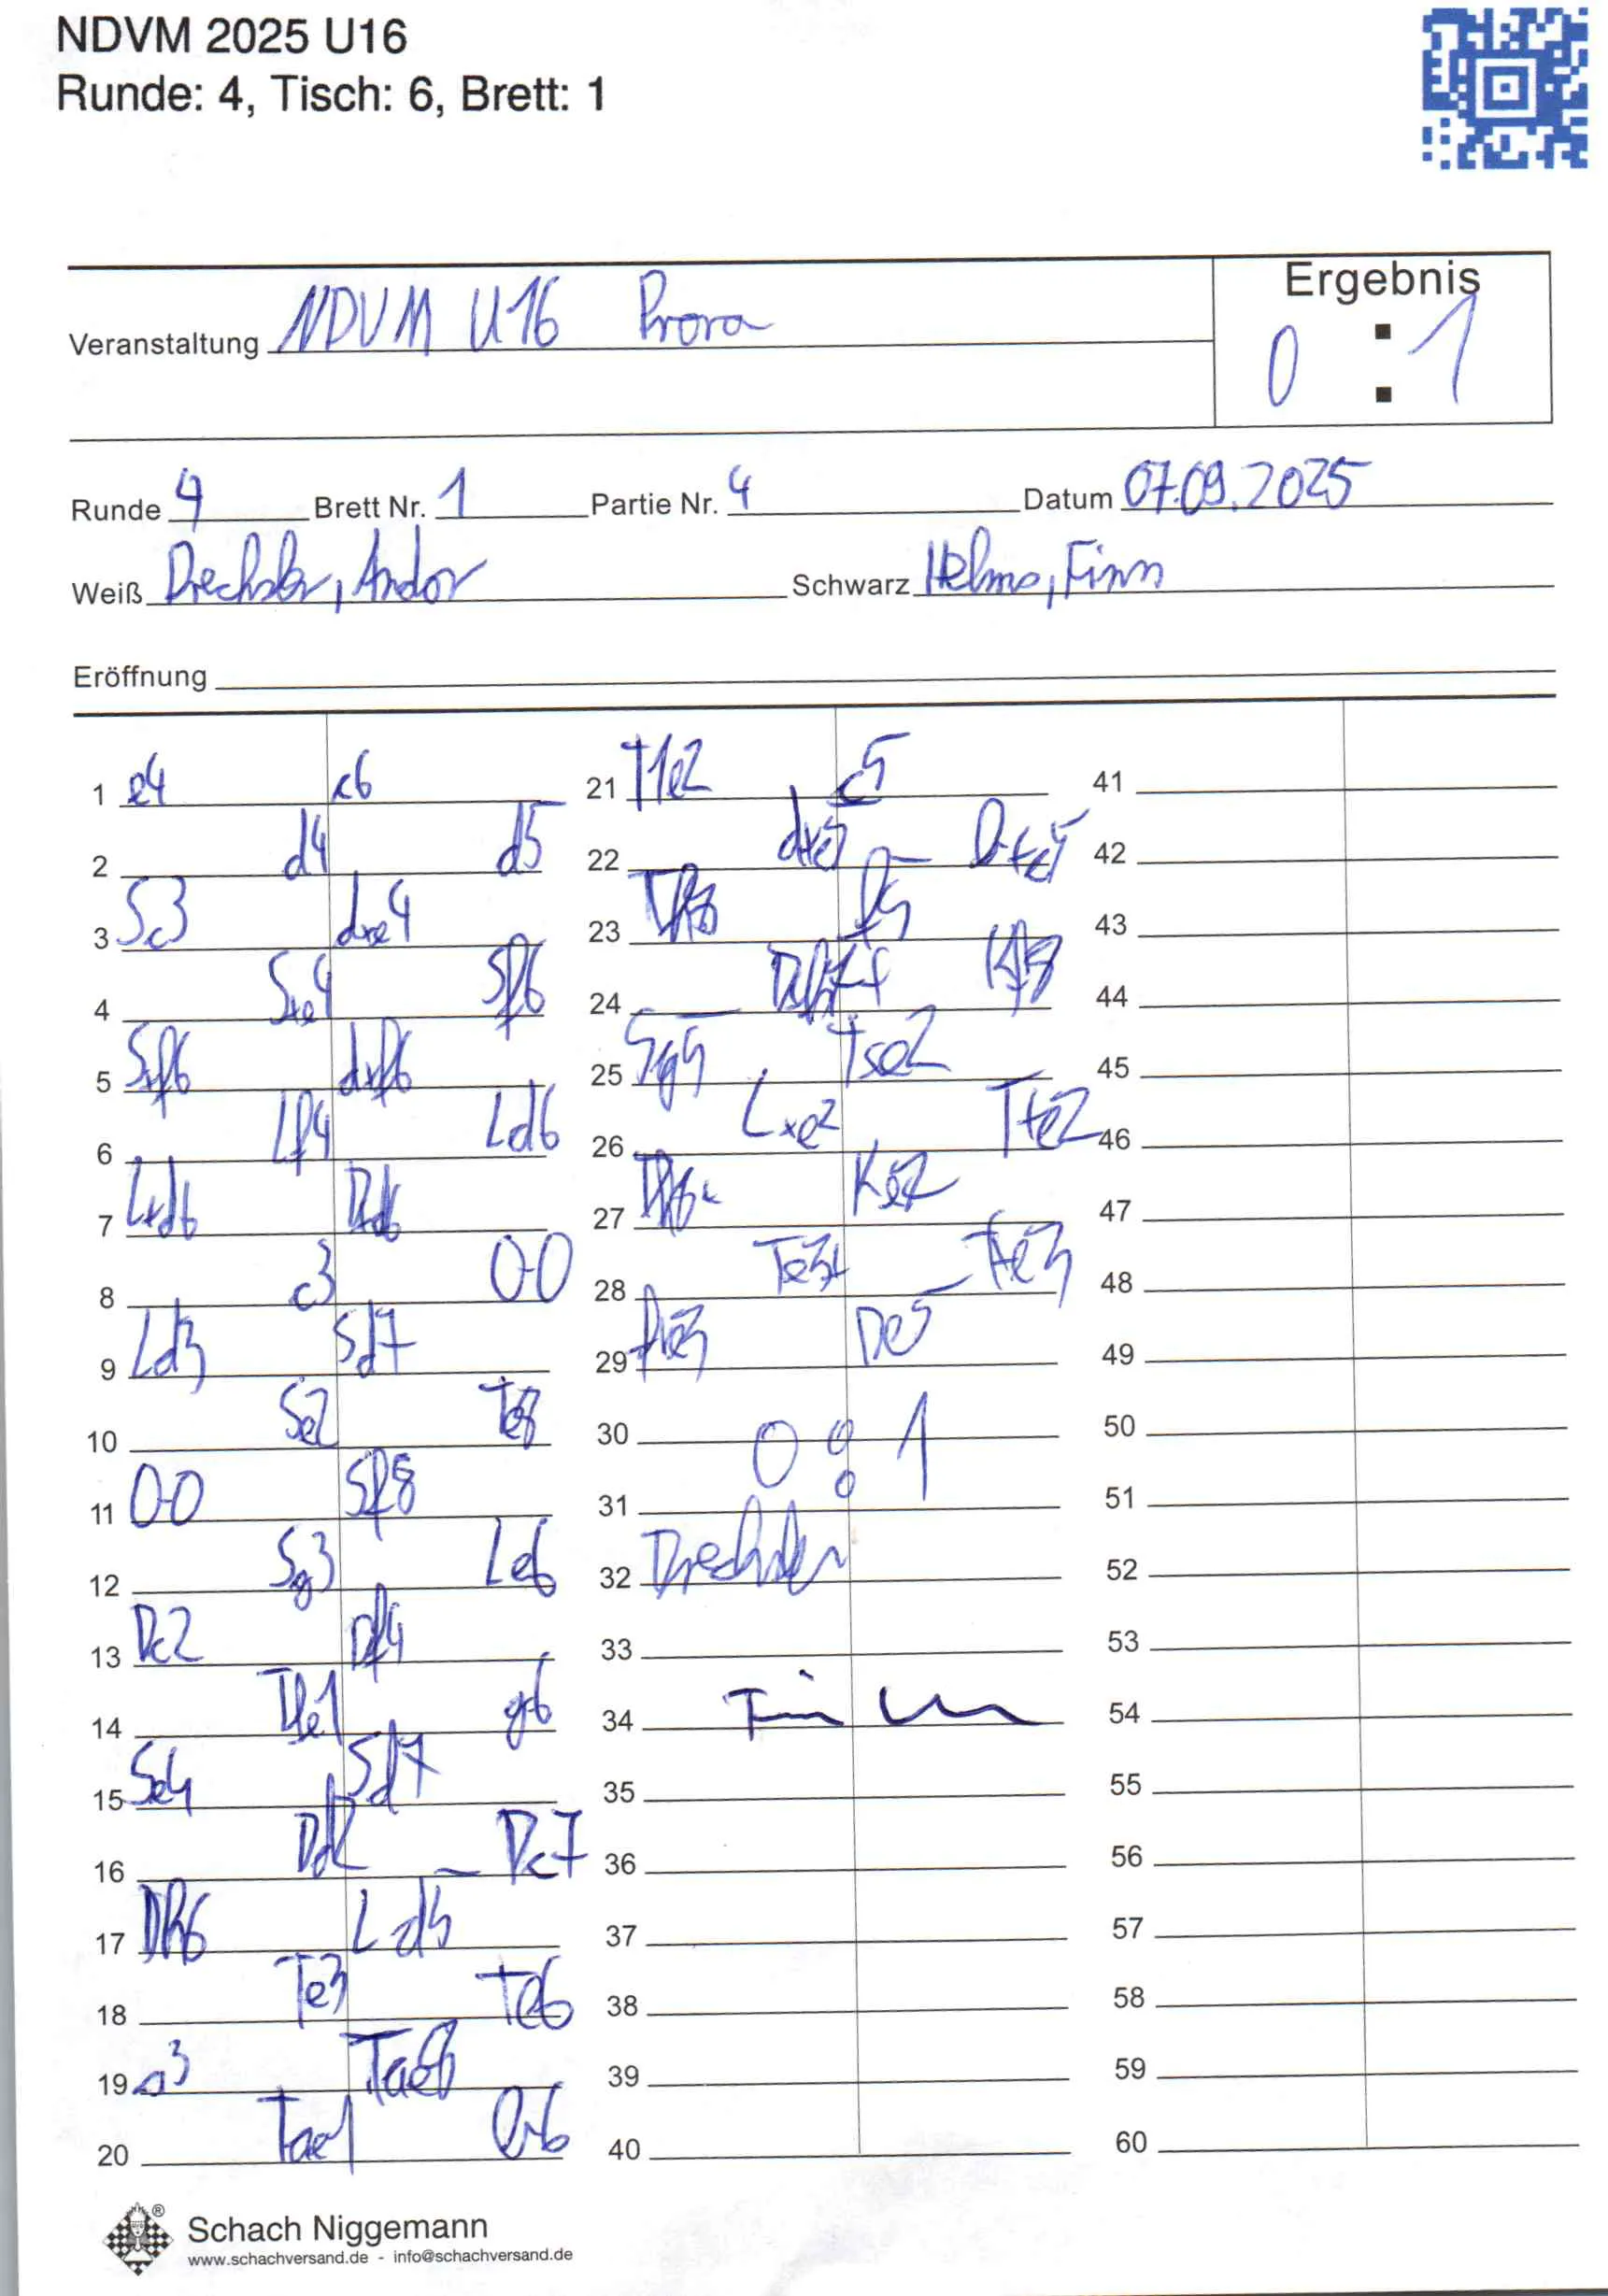 NDVM 2025 U16
Runde: 4, Tisch: 6, Brett: 1
Ergebnis
Veranstaltung NDVM U16 Prora
0 : 1
Runde 4 Brett Nr. 1 Partie Nr. 4 Datum 07.09.2025
Weiß Drechsler, Andor Schwarz Helms, Finn
Eröffnung
1 e4 c6
2 d4 d5
3 Sc3 dxe4
4 Sxe4 Sf6
5 Sxf6 dxf6
6 Lf4 Ld6
7 Lxd6 Dxd6
8 c3 0-0
9 Ld3 Sd7
10 Se2 Te8
11 0-0 Sf8
12 Sg3 Le6
13 Dc2 Df4
14 Tfe1 g6
15 Se4 Sd7
16 Dd2 Dc7
17 Dh6 Ld5
18 Te3 Te6
19 a3 Tae8
20 Tae1 Db6
21 T1e2 c5
22 dxc5 Dxc5
23 Th3 f5
24 Dxh7+ Kf8
25 Sg5 Txe2
26 Lxe2 Txe2
27 Dh6+ Ke7
28 Te3+ Txe3
29 Dxe3 De5
30 0 : 1
31
32 Drechsler
33
34
35
36
37
38
39
40
41
42
43
44
45
46
47
48
49
50
51
52
53
54
55
56
57
58
59
60
Schach Niggemann
www.schachversand.de - info@schachversand.de